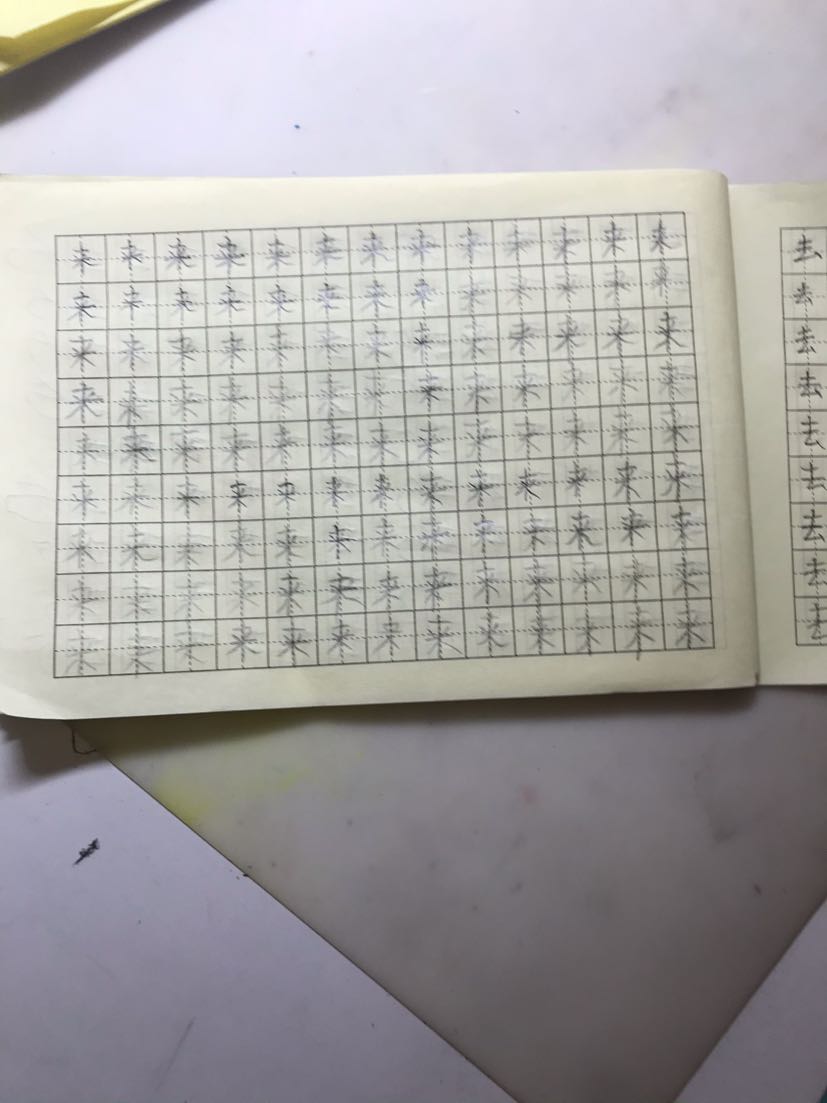 来来来来来来来来来来来来来
来来来来来来来来来来来来来
来来来来来来来来来来来来来
来来来来来来来来来来来来来
来来来来来来来来来来来来来
来来来来来来来来来来来来来
来来来来来来来来来来来来来
来来来来来来来来来来来来来
来来来来来来来来来来来来来
去
去
去
去
去
去
去
去
去